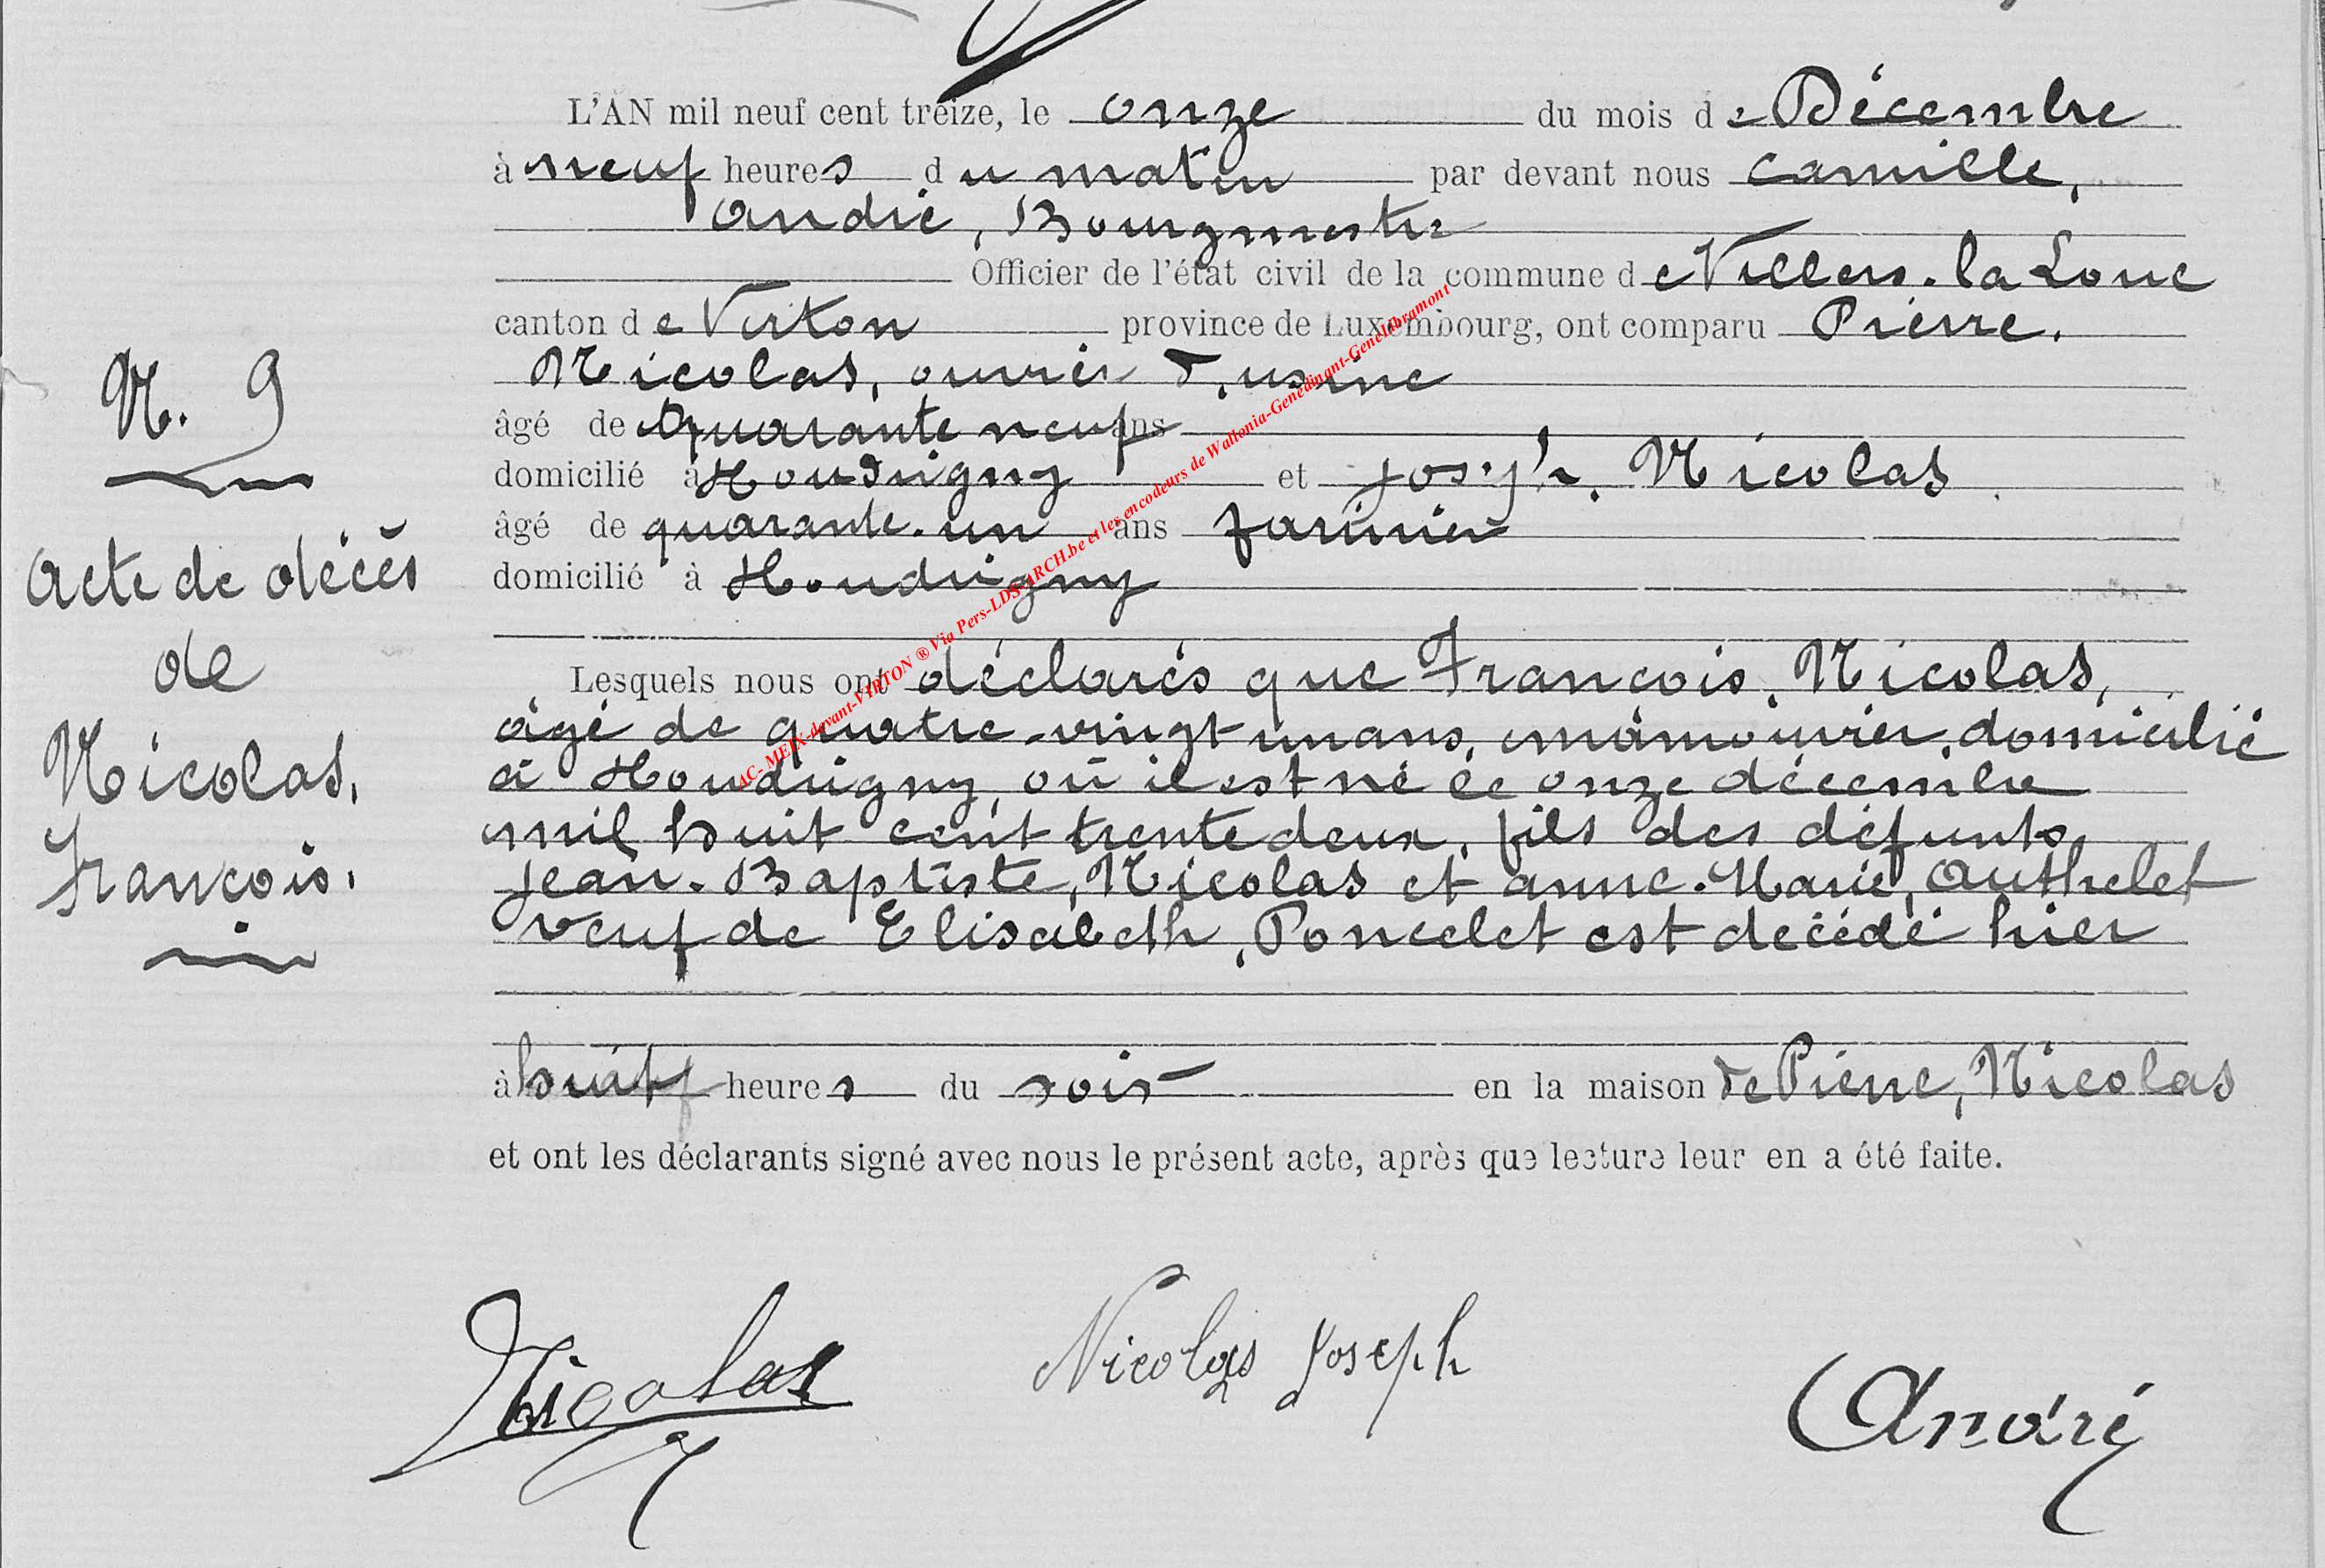 L'AN mil neuf cent treize, le onze du mois de Décembre
à neuf heures du matin par devant nous Camille,
André, Bourgmestre
Officier de l'état civil de la commune de Villers-la-Loue
canton de Virton province de Luxembourg, ont comparu Pierre.
Nicolas, ouvrier d'usine
âgé de quarante neuf ans
domicilié à Houdrigny et Joseph. Nicolas
âgé de quarante-un ans
domicilié à Houdrigny
N. 9
Acte de décès
de
Nicolas,
François.
Lesquels nous ont déclarés que François, Nicolas,
âgé de quatre-vingt un ans, manouvrier, domicilié
à Houdrigny, où il est né le onze décembre
mil huit cent trente deux, fils des défunts
Jean-Baptiste, Nicolas et Anne-Marie, Authelet
veuf de Elisabeth, Poncelet est décédé hier
à heures du soir en la maison de Pierre, Nicolas
et ont les déclarants signé avec nous le présent acte, après que lecture leur en a été faite.
Nicolas Nicolas Joseph André
AC-MEIX-devant-VIRTON ® Via Pers-LDS-ARCH.be et les encodeurs de Wallonia-Genedinant-Genelibramont